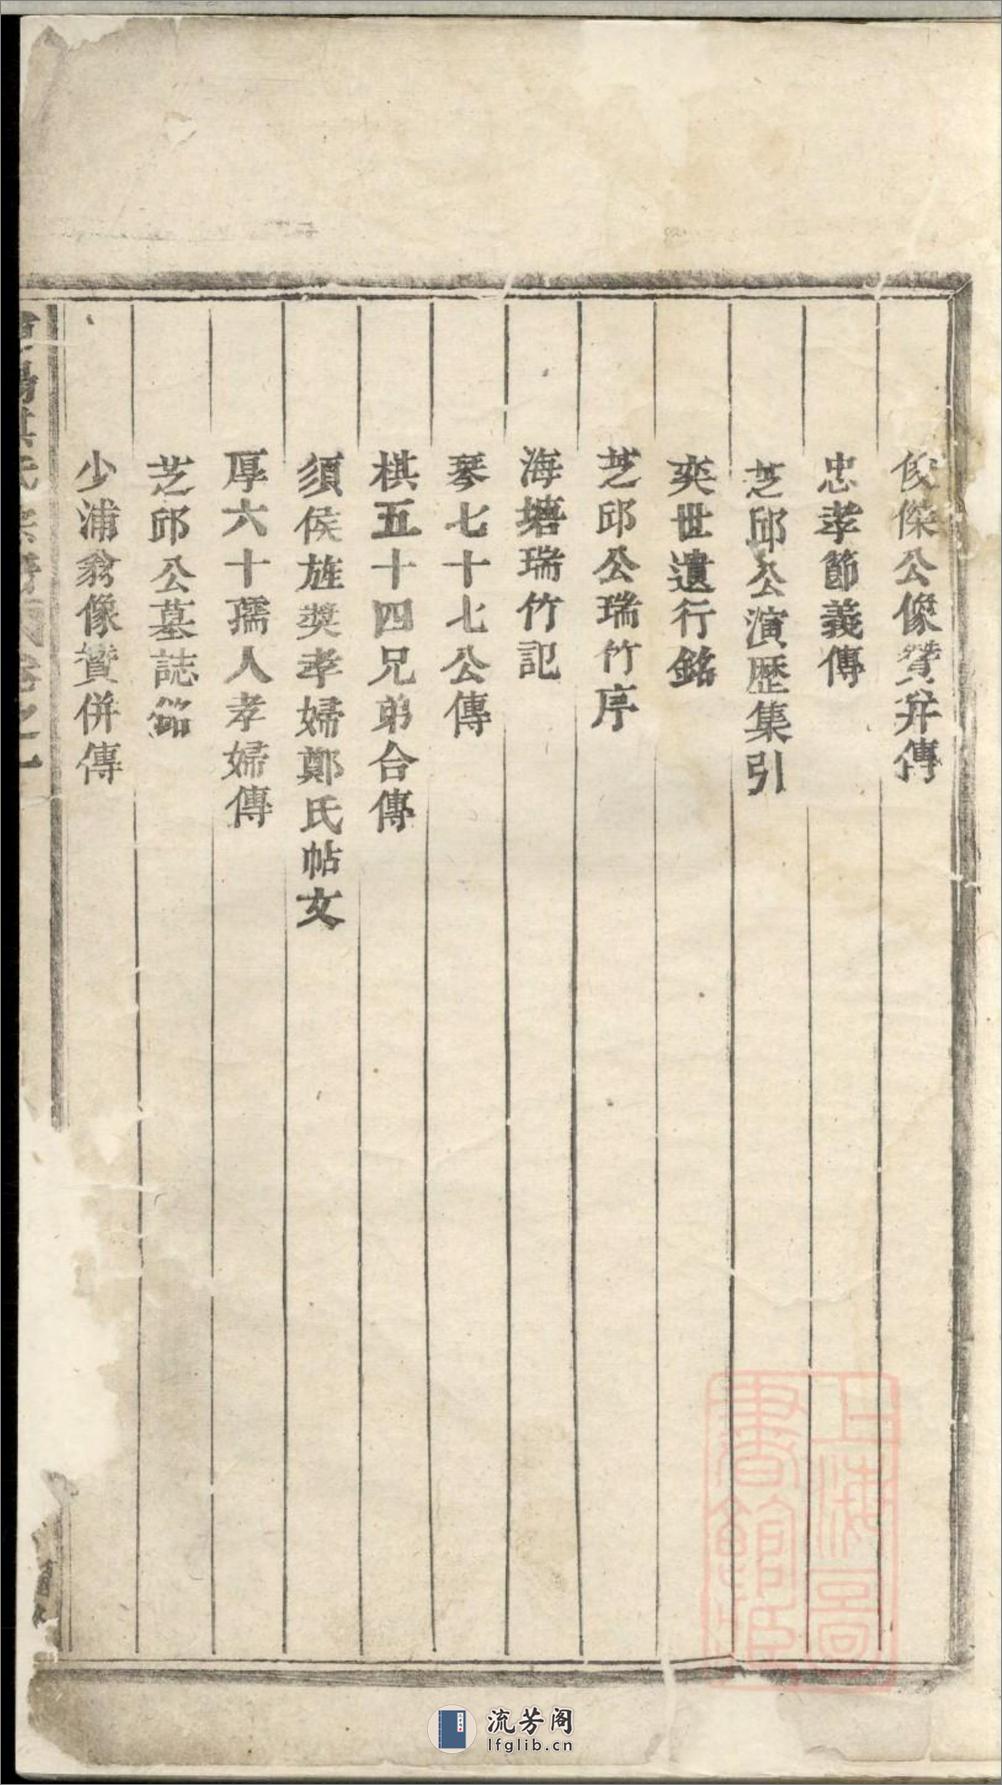 俊傑公像贊并傳
忠孝節義傳
芝邱公演歷集引
奕世遺行銘
芝邱公瑞竹序
海塘瑞竹記
琴七十七公傳
棋五十四兄弟合傳
須侯旌獎孝婦鄭氏帖文
厚六十孺人孝婦傳
芝邱公墓誌銘
少浦翁像贊併傳
氏宗譜 卷之一
上海圖書館藏
流芳阁
lfglib.cn